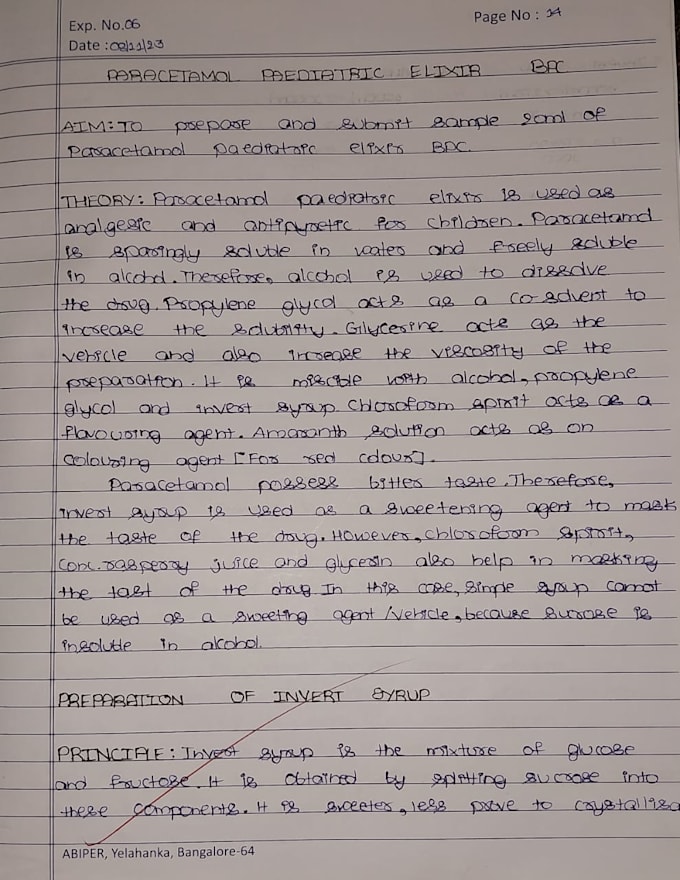 Exp. No.06
Page No : 14
Date :
PARACETAMOL PAEDIATRIC ELIXIR BPC
AIM: To prepare and submit sample 20ml of
Paracetamol paediatric elixir BPC.
THEORY: Paracetamol paediatric elixir is used as
analgesic and antipyretic for children. Paracetamol
is sparingly soluble in water and freely soluble
in alcohol. Therefore, alcohol is used to dissolve
the drug. Propylene glycol acts as a co-solvent to
increase the solubility. Glycerine acts as the
vehicle and also increase the viscosity of the
preparation. It is miscible with alcohol, propylene
glycol and invert syrup. Chloroform spirit acts as a
flavouring agent. Amaranth solution acts as an
colouring agent [For red colour].
Paracetamol possess bitter taste. Therefore,
invert syrup is used as a sweetening agent to mask
the taste of the drug. However, chloroform spirit,
conc. raspberry juice and glycerin also help in masking
the tast of the drug. In this case, simple syrup cannot
be used as a sweeting agent /vehicle, because sucrose is
insoluble in alcohol.
PREPARATION OF INVERT SYRUP
PRINCIPLE: Invert syrup is the mixture of glucose
and fructose. It is obtained by splitting sucrose into
these components. It is sweeter, less prove to crystallisa
ABIPER, Yelahanka, Bangalore-64